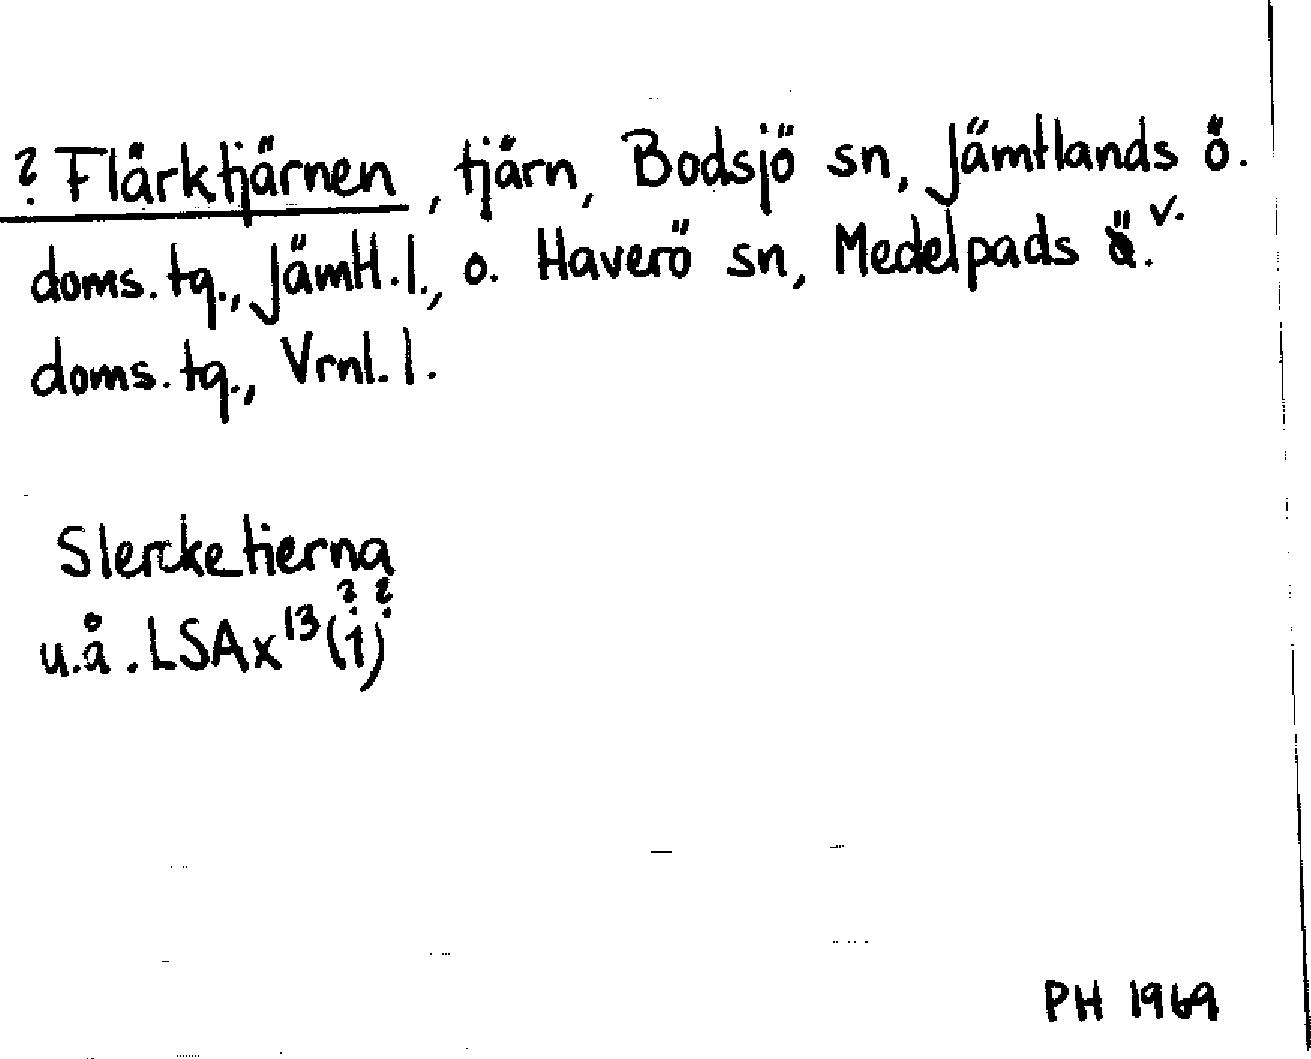 ? Flärktjärnen, tjärn, Bodsjö sn, Jämtlands ö.
doms. tg., Jämtl. l., o. Haverö sn, Medelpads v.
doms. tg., Vrnl. l.
Slercketierna
u.å. LSA x 13 (i??)
PH 1969